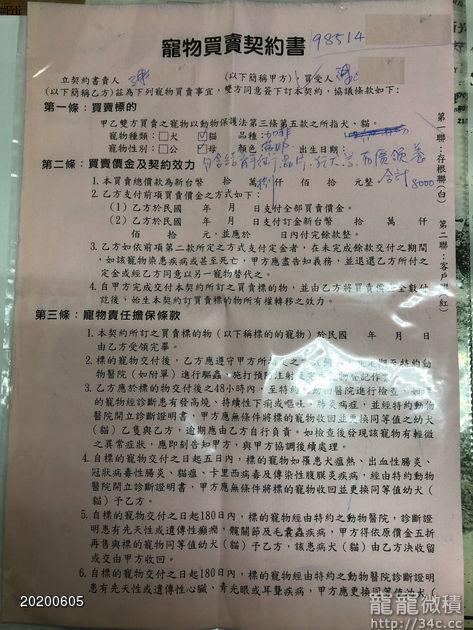 寵物買賣契約書 98514
立契約書賣人 (以下簡稱甲方) 買受人
(以下簡稱乙方)茲為下列寵物買賣事宜，雙方同意簽下訂本契約，協議條款如下：
第一條：買賣標的
甲乙雙方買賣之寵物以動物保護法第三條第五款之所指犬、貓。
寵物種類：□犬 ☑貓 品種：
寵物性別：□公 ☑母 顏色： 出生日期：
第二條：買賣價金及契約效力
1.本買賣總價款為新台幣 拾 仟 佰 拾 元整 合計 8000
2.乙方支付前項買賣價金之方式如下：
(1)乙方於民國 年 月 日支付全部買賣價金。
(2)乙方於民國 年 月 日支付新台幣 拾 萬 仟
佰 拾 元，並應於 日內付完餘款整。
3.乙方如依前項第二款所定之方式支付定金者，在未完成餘款交付之期間，
如該寵物染患疾病或甚至死亡，甲方應盡告知義務，並退還乙方所付之
定金或經乙方同意以另一寵物替代之。
4.自甲方完成交付本契約所訂之買賣標的物，並由乙方將買賣價金全數付
訖後，始生本契約訂買賣標的物所有權轉移之效力。
第三條：寵物責任擔保條款
1.本契約所訂之買賣標的物(以下稱標的的寵物)於民國 年 月 日
由乙方受領完畢。
2.標的寵物交付後，乙方應遵守甲方所
醫院(如附單)進行驅蟲、施打預防注射
3.乙方應於標的物交付後之48小時內，至特約動物醫院進行檢查，如
的寵物經診斷患有發高燒、持續性下痢或嘔吐、肺炎病症，並經特約動物
醫院開立診斷證明書，甲方應無條件將標的寵物收回並更換同等值之幼犬
(貓)乙隻與乙方，逾期應由乙方自行負責。如檢查後發現該寵物有輕微
之異常症狀，應即刻告知甲方，與甲方協調後續處理。
4.自標的寵物交付之日起五日內，標的寵物如罹患犬瘟熱、出血性腸炎、
冠狀病毒性腸炎、貓瘟、卡里西病毒及傳染性腹膜炎疾病，經由特約動物
醫院開立診斷證明書，甲方應無條件將標的寵物收回並更換同等值幼犬(
貓)予乙方。
5.自標的寵物交付之日起180日內，標的寵物經由特約之動物醫院，診斷證
明患有先天性或遺傳性癲癇，髖關節及毛囊蟲疾病，甲方得依原價金五折
再售與標的寵物同等值幼犬(貓)予乙方，該患病犬(貓)由乙方決收留
或交由甲方收回。
6.自標的寵物交付之日起180日內，標的寵物經由特約之動物醫院，診斷證
明患有先天性或遺傳性心臟、青光眼或耳聾疾病，甲方應更換同等值幼犬(
第一聯：存根聯(白) 第二聯：客戶聯(紅)
20200605
龍龍微積
http://34c.cc